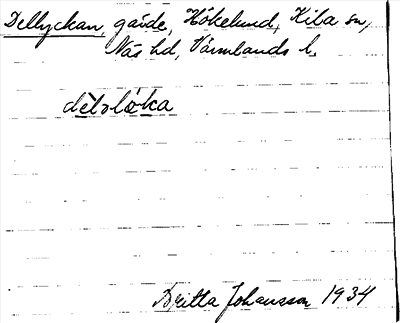 Dellyckan, gärde, Hökelund, Kila sn,
Näs hd, Värmlands l.
dèlvlö́ka
Britta Johansson 1934